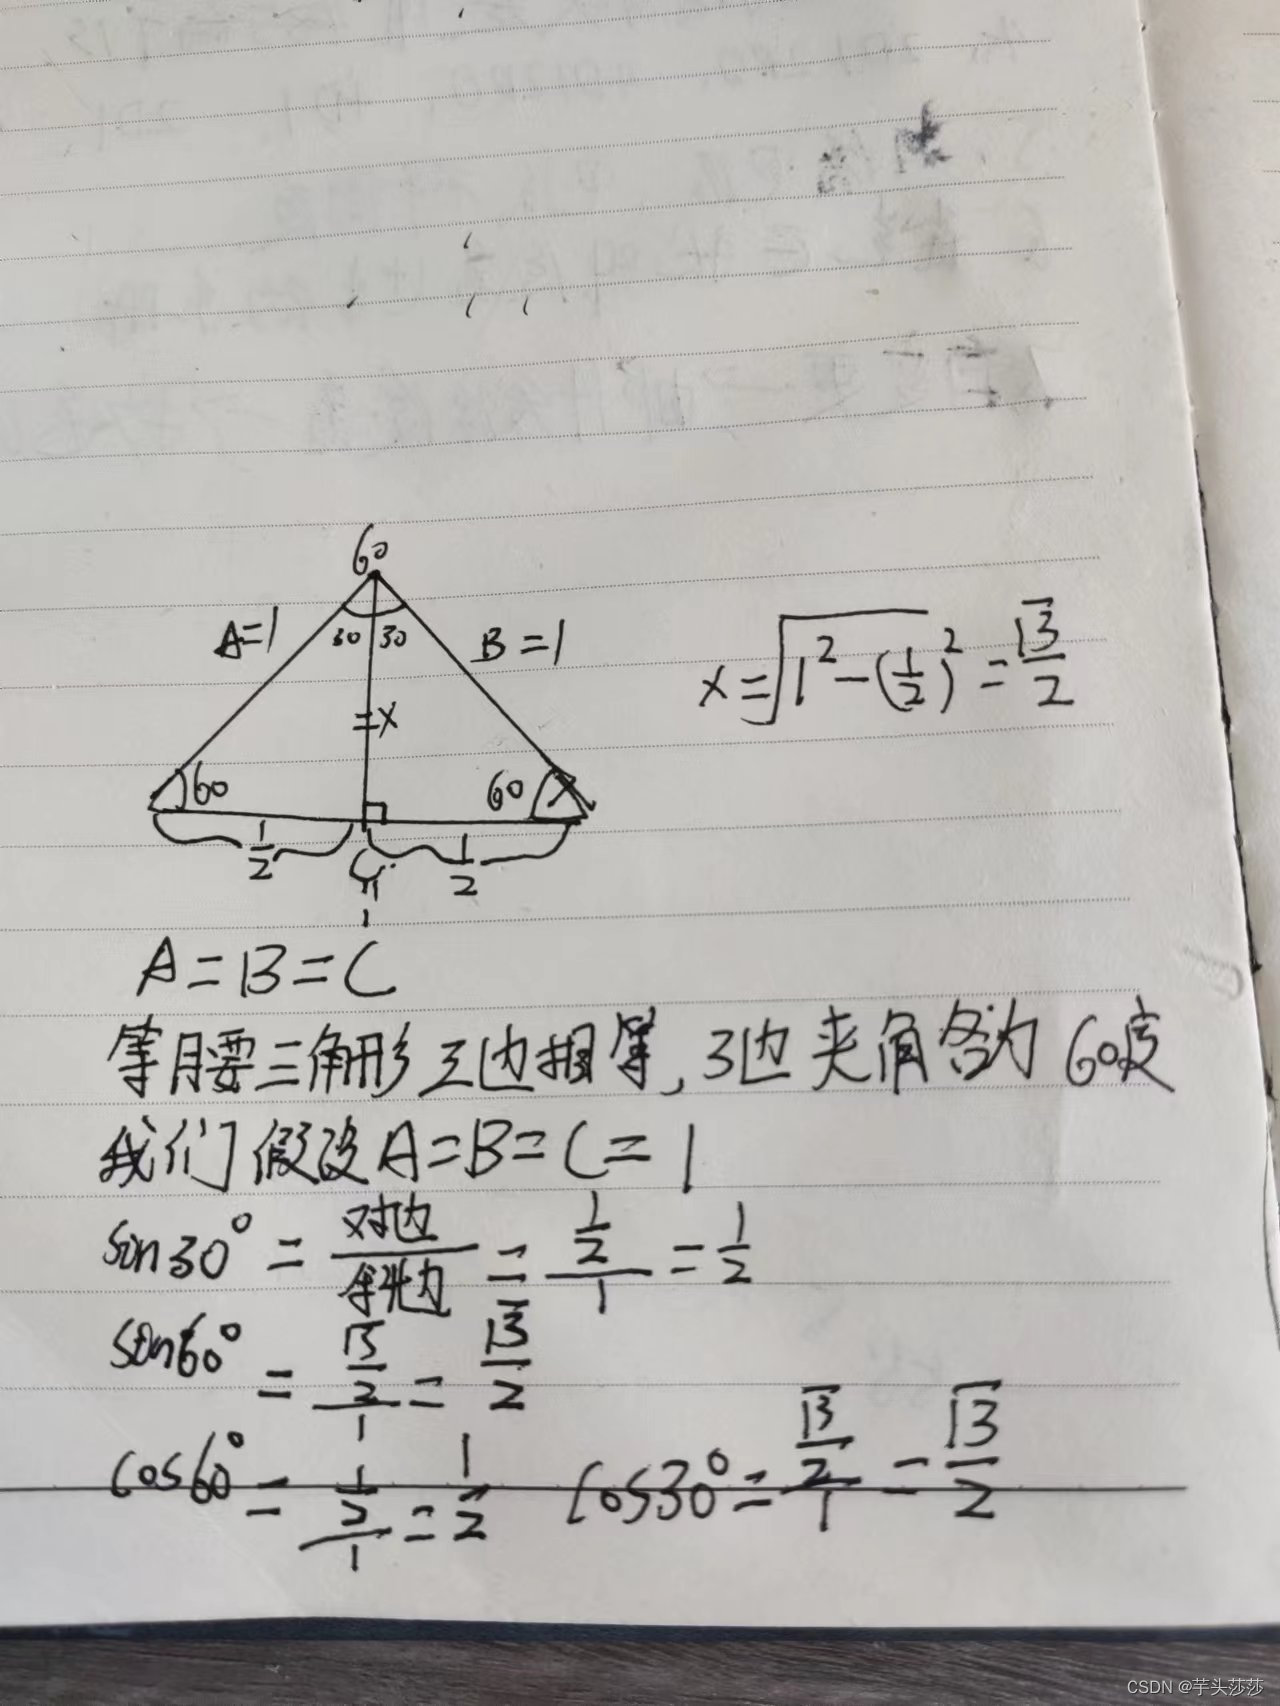 60
A=1
30 30
B=1
x=√(1²-(1/2)²)=√3/2
=x
60
60
1/2
1/2
C=1
A=B=C
等月要三角形三边相等,3边夹角各为60度
我们假设A=B=C=1
sin30°=对边/斜边=(1/2)/1=1/2
sin60°=(√3/2)/1=√3/2
cos60°=(1/2)/1=1/2
cos30°=(√3/2)/1=√3/2
CSDN @芋头莎莎